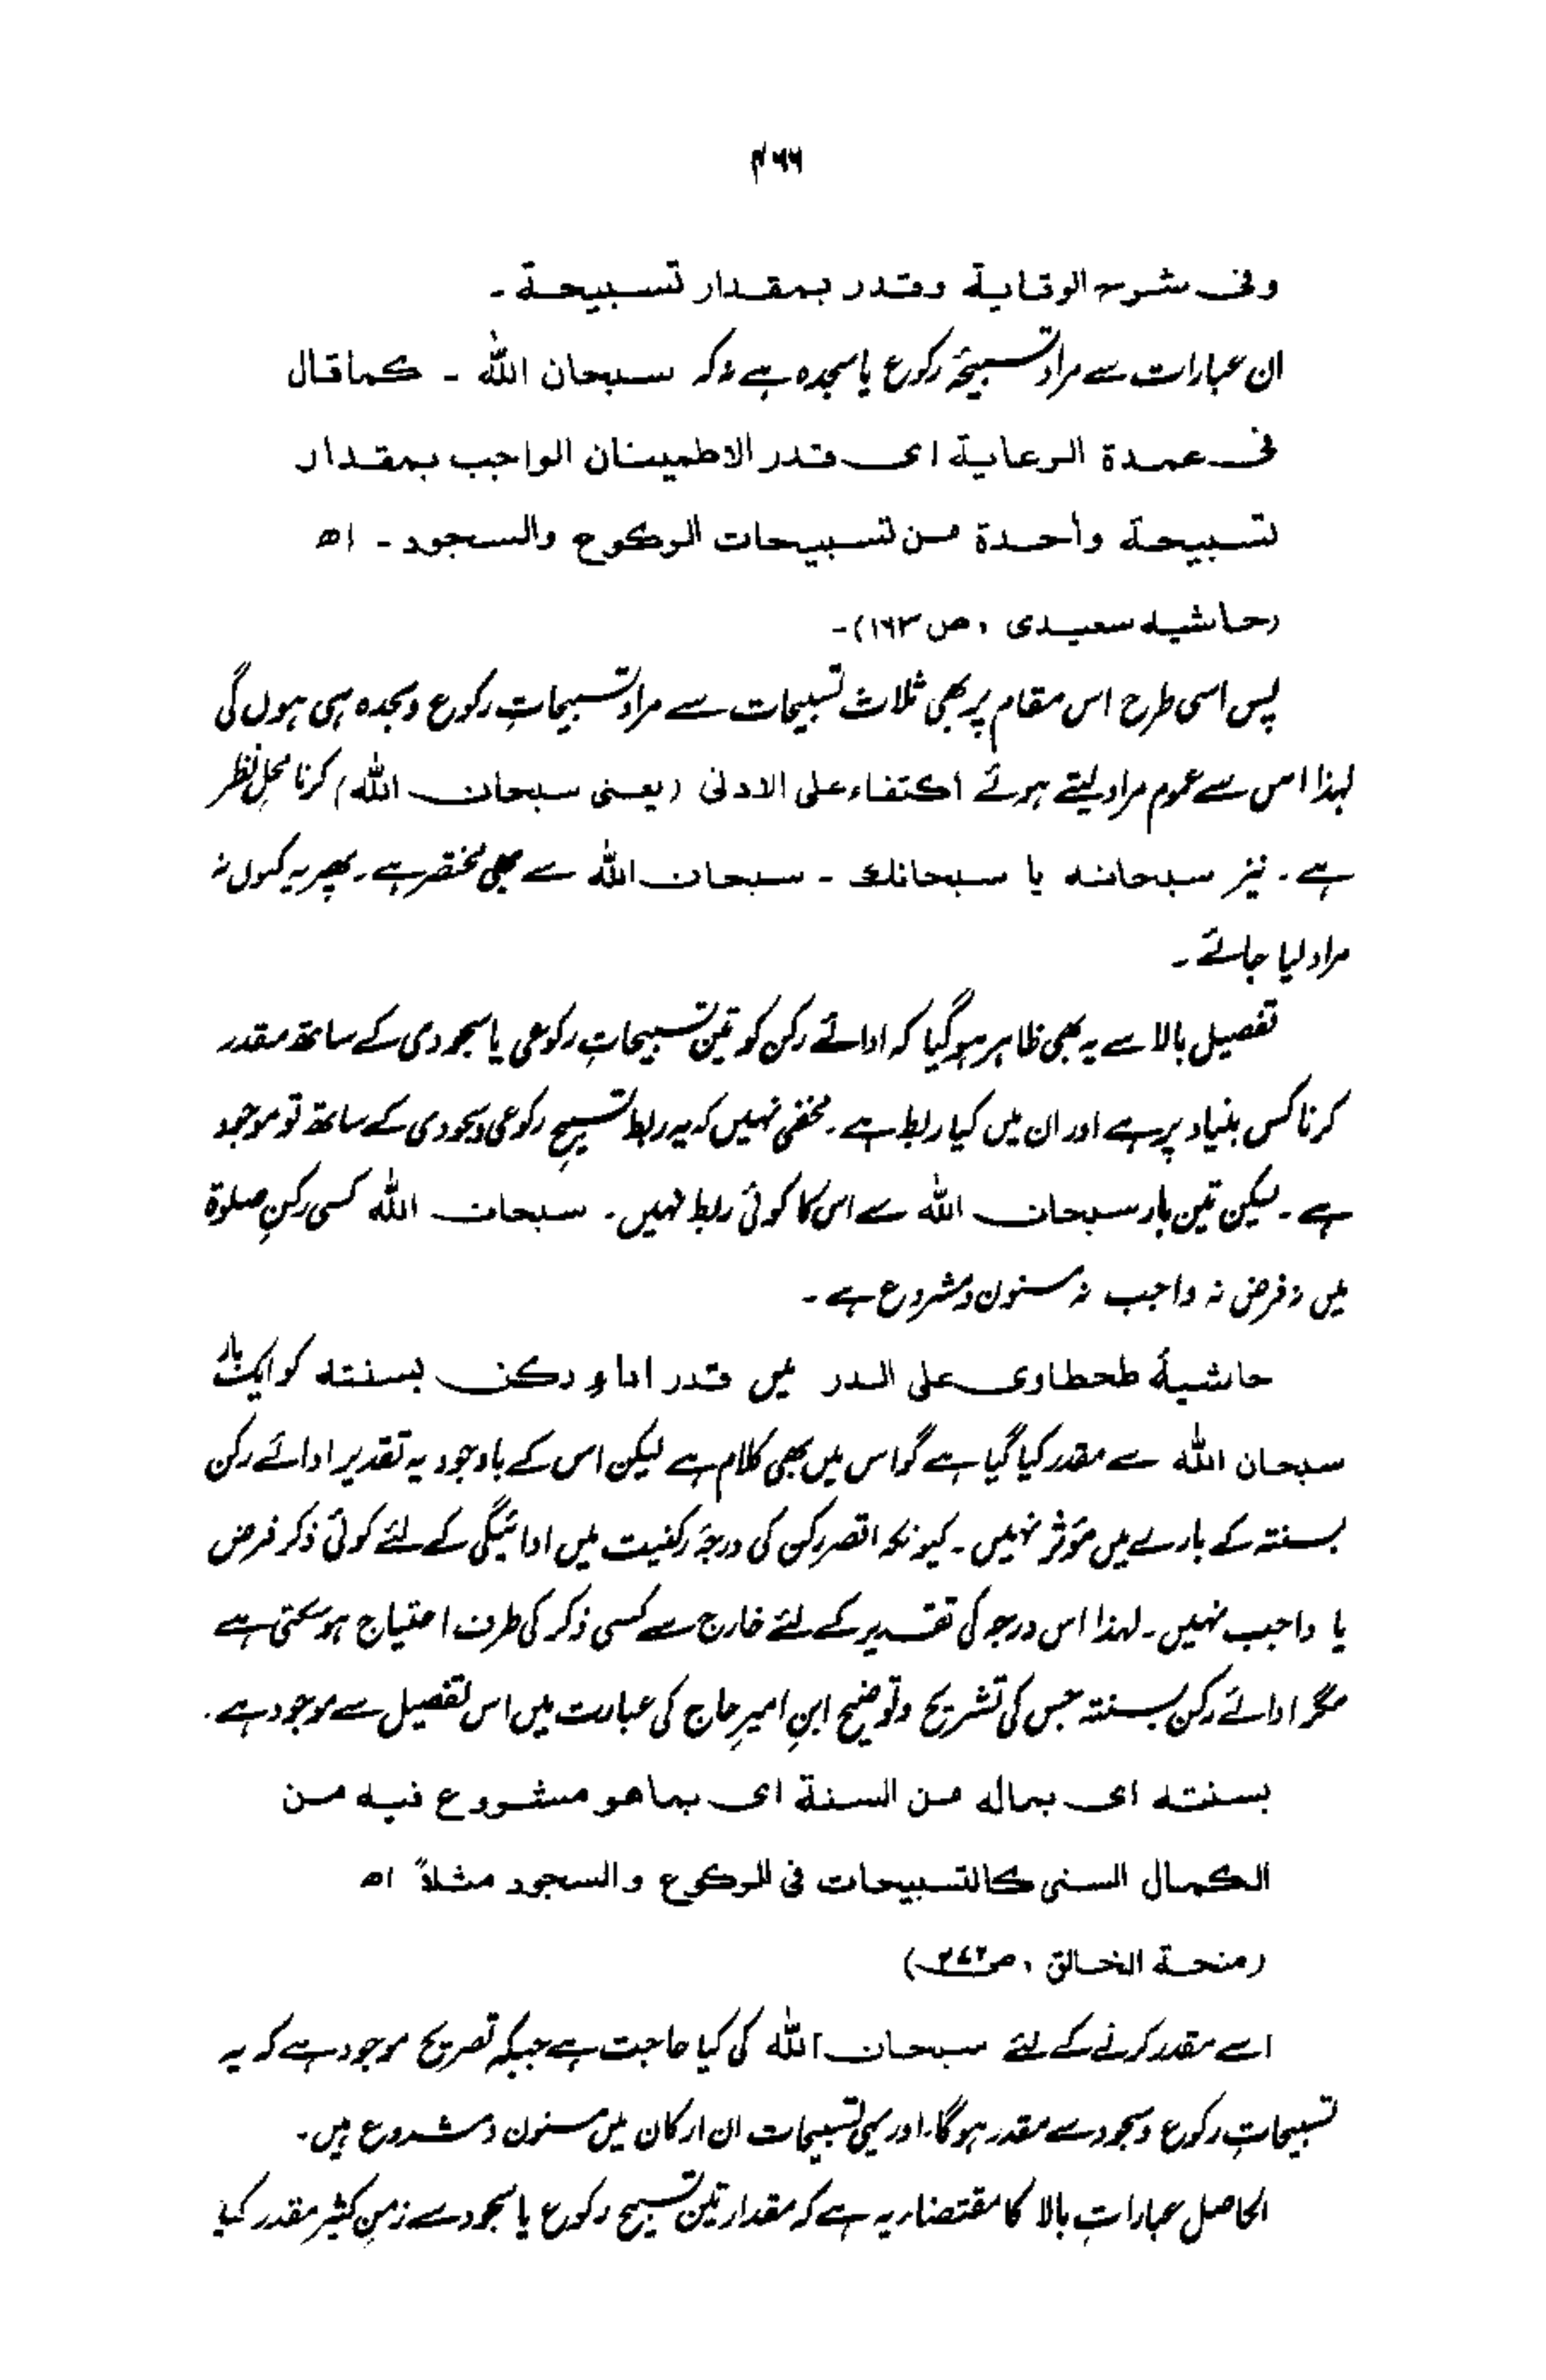 ۴۶۶
وفی شرح الوقایة وقدر بمقدار تسبیحة ۔
ان عبارات سے مراد تسبیحۂ رکوع یا سجدہ ہے نہ کہ سبحان اللہ ۔ کما قال
فی عمدة الرعایة ای قدر الاطمینان الواجب بمقدار
تسبیحة واحدة من تسبیحات الرکوع والسجود ۔ اھ
(حاشیہ سعیدی ، ص ۱۶۳)۔
پس اسی طرح اس مقام پر بھی ثلاث تسبیحات سے مراد تسبیحاتِ رکوع وسجدہ ہی ہوں گی
لہذا اس سے عموم مراد لیتے ہوئے اکتفاء علی الادنی (یعنی سبحان اللہ) کرنا محلِ نظر
ہے ۔ نیز سبحانہ یا سبحانک ۔ سبحان اللہ سے بھی مختصر ہے ۔ پھر یہ کیوں نہ
مراد لیا جائے ۔
تفصیل بالا سے یہ بھی ظاہر ہوگیا کہ ادائے رکن کو تین تسبیحاتِ رکوعی یا سجودی کے ساتھ مقدر
کرنا کس بنیاد پر ہے اور ان میں کیا ربط ہے ۔ مخفی نہیں کہ یہ ربط تسبیحِ رکوعی وسجودی کے ساتھ تو موجود
ہے ۔ لیکن تین بار سبحان اللہ سے اس کا کوئی ربط نہیں ۔ سبحان اللہ کسی رکنِ صلوۃ
میں نہ فرض نہ واجب نہ مسنون ومشروع ہے ۔
حاشیۂ طحطاوی علی الدر میں قدر اداء رکن بسنتہ کو ایک بار
سبحان اللہ سے مقدر کیا گیا ہے گو اس میں بھی کلام ہے لیکن اس کے باوجود یہ تقدیر ادائے رکن
بسنتہ کے بارے میں مؤثر نہیں ۔ کیونکہ اقصر رکن کی درجۂ رکنیت میں ادائیگی کے لئے کوئی ذکر فرض
یا واجب نہیں ۔ لہذا اس درجہ کی تقدیر کے لئے خارج سے کسی ذکر کی طرف احتیاج ہو سکتی ہے
مگر ادائے رکن بسنتہ جس کی تشریح وتوضیح ابنِ امیرِ حاج کی عبارت میں اس تفصیل سے موجود ہے ۔
بسنتہ ای بمالہ من السنة ای بما ھو مشروع فیہ من
الکمال السنی کالتسبیحات فی الرکوع والسجود مثلاً اھ
(منحة الخالق ، ص)
اسے مقدر کرنے کے لئے سبحان اللہ کی کیا حاجت ہے جبکہ تصریح موجود ہے کہ یہ
تسبیحاتِ رکوع وسجود سے مقدر ہوگا، اور یہی تسبیحات ان ارکان میں مسنون ومشروع ہیں ۔
الحاصل عباراتِ بالا کا مقتضاء یہ ہے کہ مقدار تین تسبیح رکوع یا سجود سے زمنِ کثیر مقدر کیا